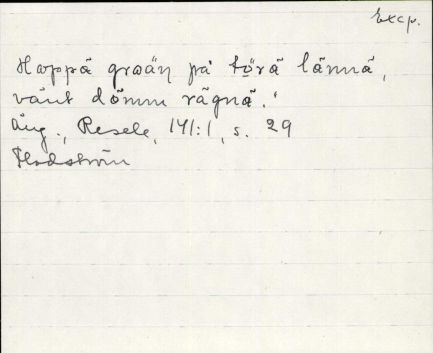 Excp.
Hoppä groäṇ på tö̤rä lännä,
vänt dömm rägnä.
Ång., Resele, 141:1, s. 29